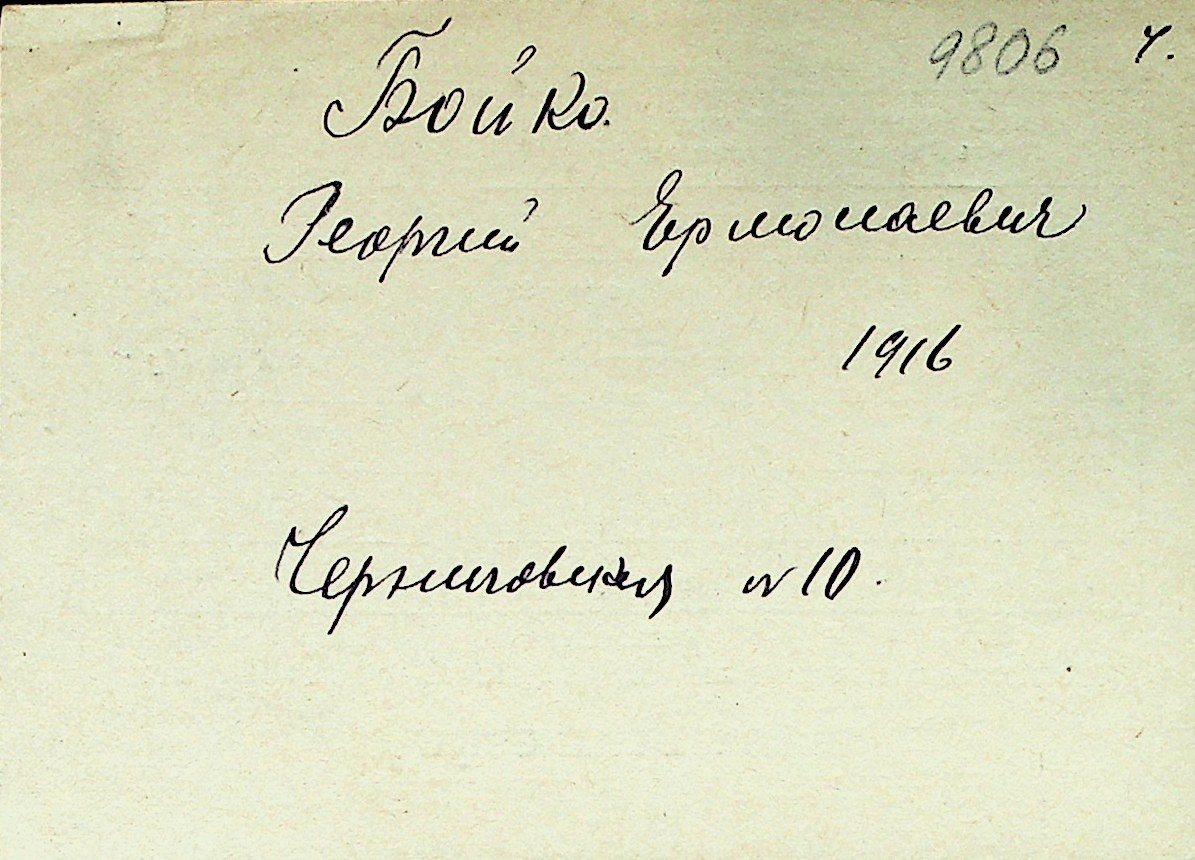 9806 ч.
Бойко.
Георгий Ермолаевич
1916
Черниговская № 10.